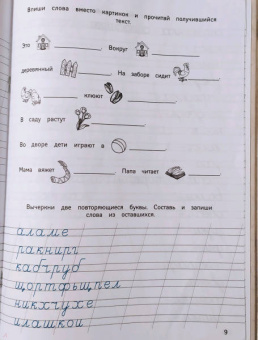 Впиши слова вместо картинок и прочитай получившийся
текст.
Это ____. Вокруг ____
деревянный ____. На заборе сидит ____
____ клюют ____.
В саду растут ____.
Во дворе дети играют в ____.
Мама вяжет ____. Папа читает ____.
Вычеркни две повторяющиеся буквы. Составь и запиши
слова из оставшихся.
аламе
ракнирг
кабгруб
щортфьщпел
никхчухе
илашкой
9